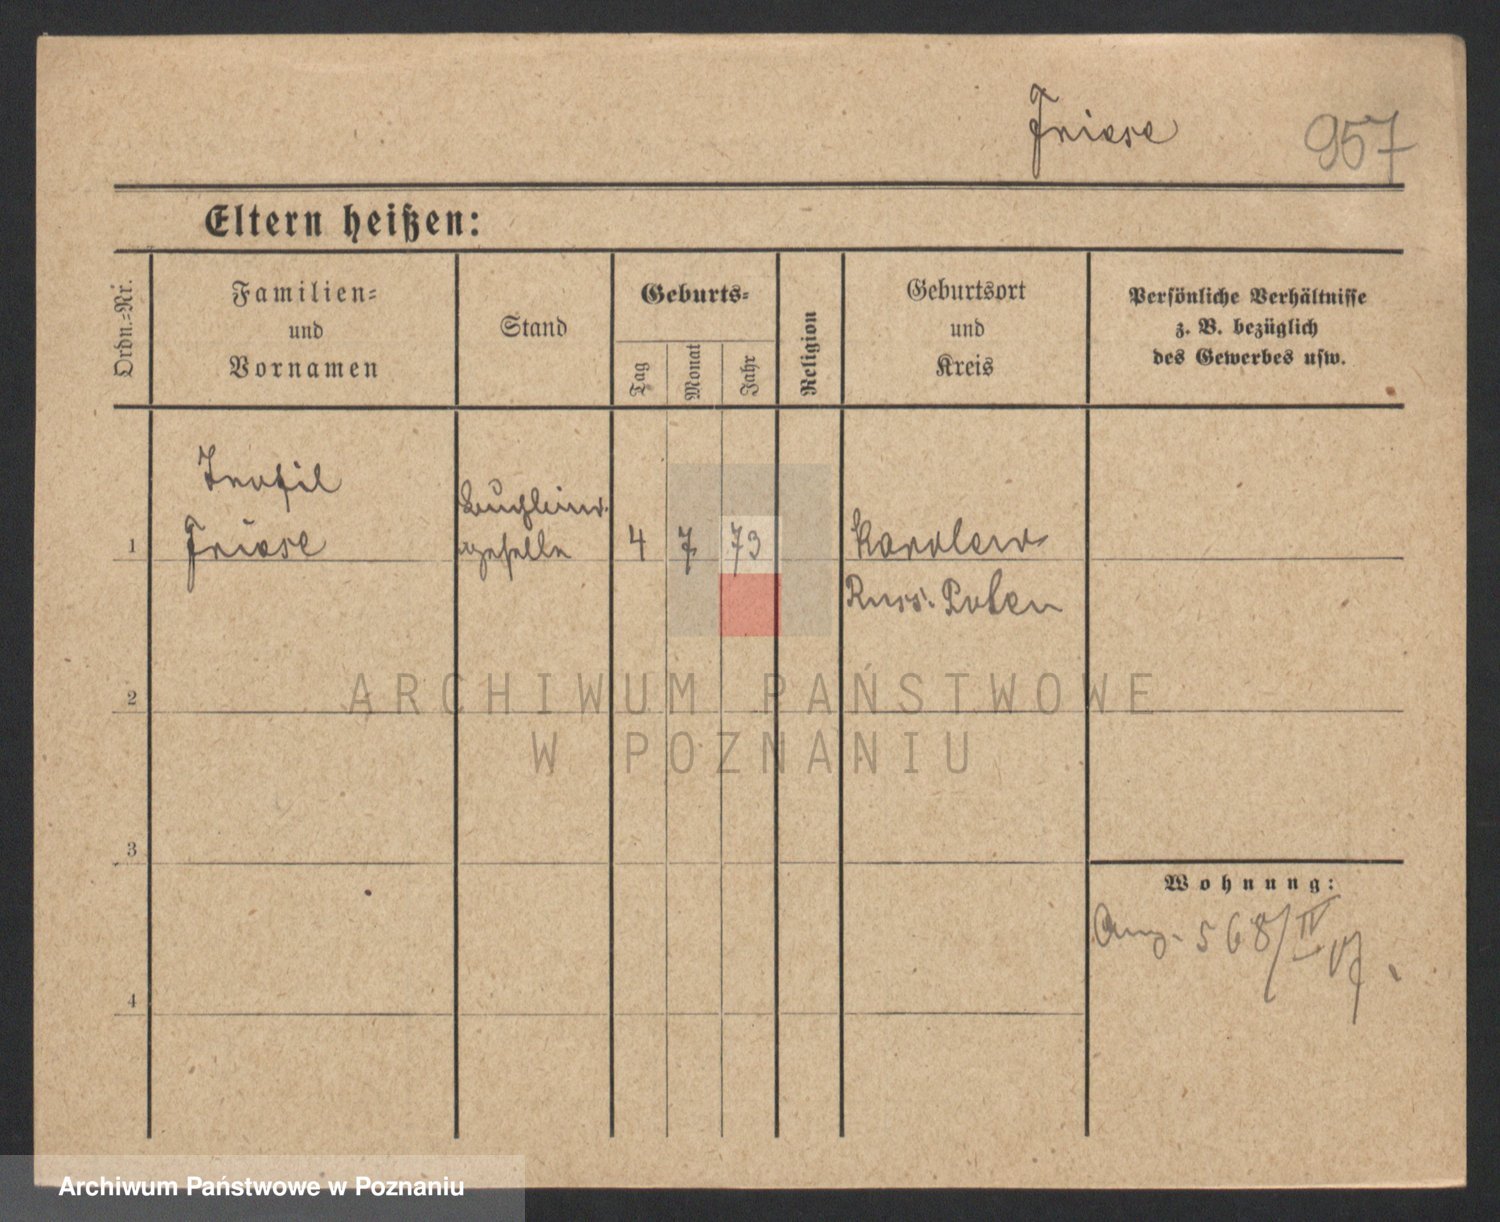 Friese 957
Eltern heißen:
Ordn.-Nr.
Familien-
und
Vornamen
Stand
Geburts-
Tag
Monat
Jahr
Religion
Geburtsort
und
Kreis
Persönliche Verhältnisse
z. B. bezüglich
des Gewerbes usw.
Friese
geselle
1
4 7 73
Russ. Polen
2
ARCHIWUM PAŃSTWOWE
W POZNANIU
3
Wohnung:
568/IV
4
Archiwum Państwowe w Poznaniu